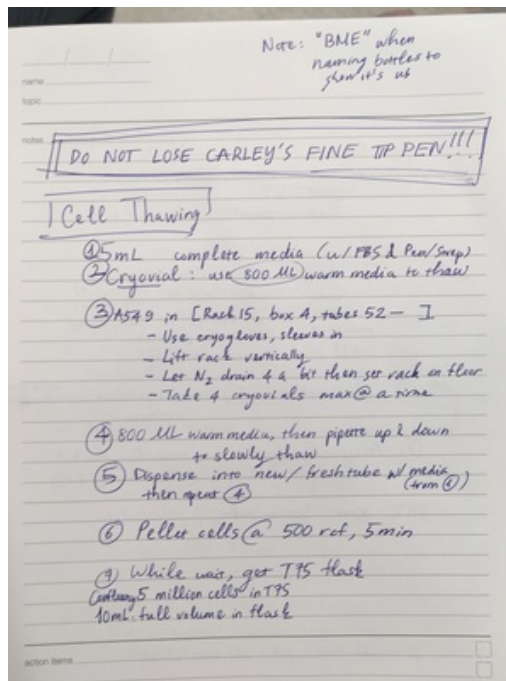 Note: "BME" when
naming bottles to
show it's us
name
topic
notes
DO NOT LOSE CARLEY'S FINE TIP PEN!!!
Cell Thawing
① 5mL complete media (w/ FBS & Pen/Strep)
② Cryovial: use 800 ML warm media to thaw
③ A549 in [Rack 15, box 4, tubes 52 - ]
- Use cryogloves, sleeves in
- Lift rack vertically
- Let N2 drain 4 a bit then set rack on floor
- Take 4 cryovials max @ a time
④ 800 ML warm media, then pipette up & down
to slowly thaw
⑤ Dispense into new/fresh tube w/ media
(from ①)
then repeat ④
⑥ Pellet cells @ 500 rcf, 5min
⑦ While wait, get T75 flask
Confluency 5 million cells in T75
10mL: full volume in flask
action items